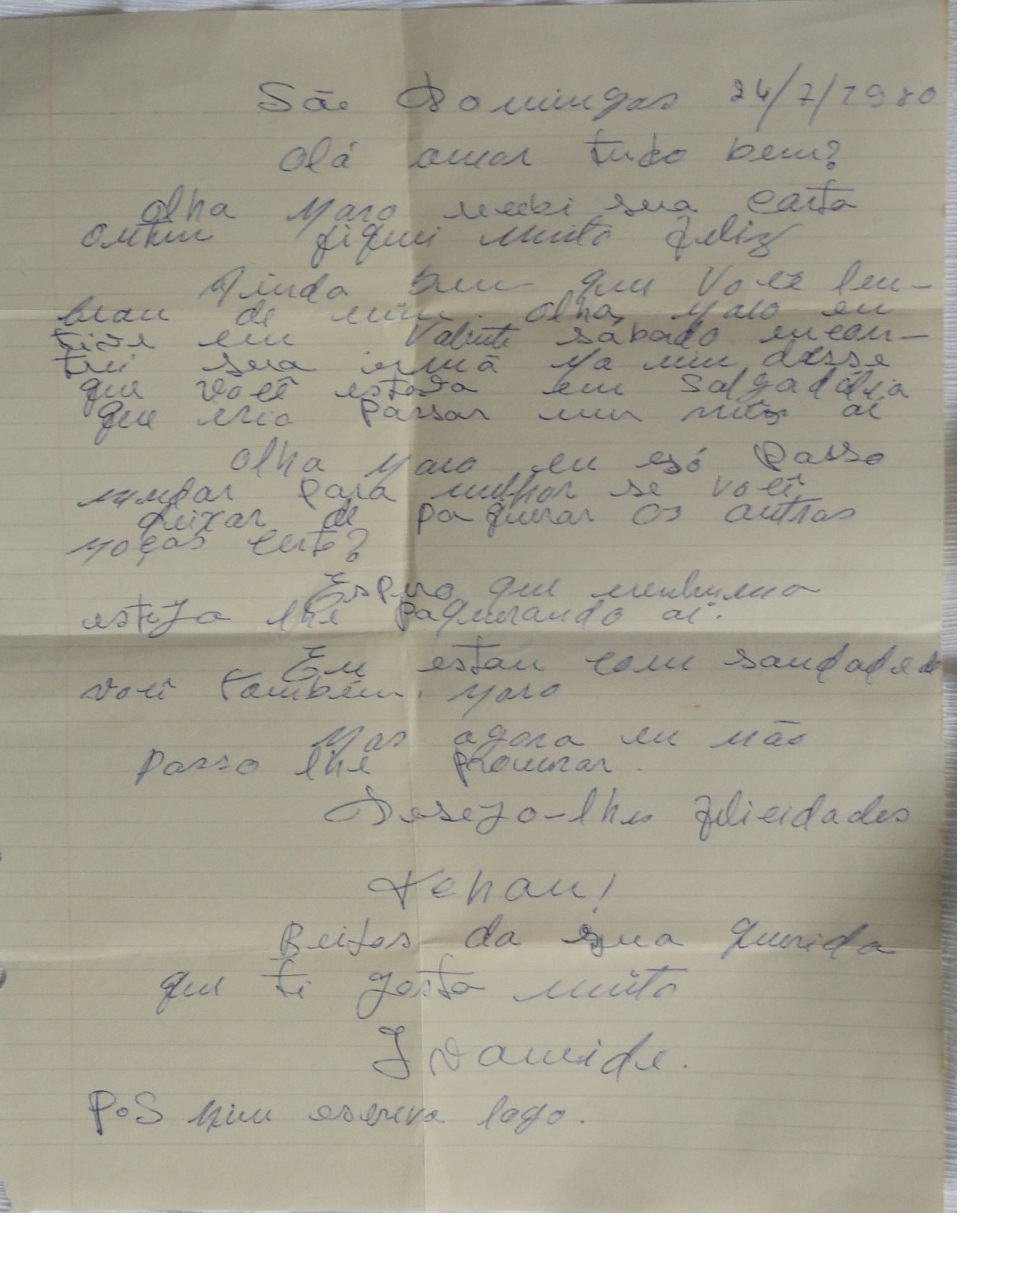 São Domingos 24/7/1980
Olá amor tudo bem?
Olha Maro recebi sua carta
ontem fiquei muito feliz
Ainda bem que você lem-
brou de mim. Olha, Maro eu
tive em Valente sábado encon-
trei sua irmã ela mim disse
que você estava em Salgadália
que iria passar um mês aí
Olha Maro eu só posso
mandar para melhor se você
deixar de paquerar as outras
moças certo?
Espero que nenhuma
esteja lhe paquerando aí.
Eu estou com saudade de
você também. Maro
Mas agora eu não
posso lhe procurar.
Desejo-lhes felicidades
Tchau!
Beijos da sua querida
que ti gosta muito
Ivaneide.
P.S mim escreva logo.